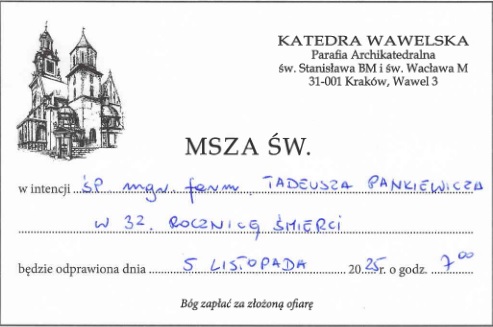 KATEDRA WAWELSKA
Parafia Archikatedralna
św. Stanisława BM i św. Wacława M
31-001 Kraków, Wawel 3
MSZA ŚW.
w intencji ŚP mgr. farm. TADEUSZA PANKIEWICZA
W 32. ROCZNICĘ ŚMIERCI
będzie odprawiona dnia 5 LISTOPADA 2025r. o godz. 7⁰⁰
Bóg zapłać za złożoną ofiarę